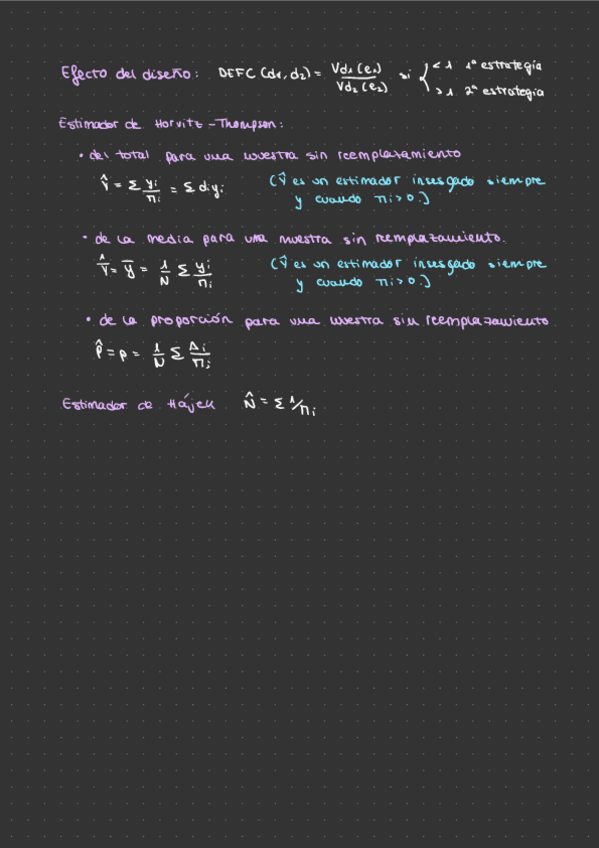 Efecto del diseño: DEFC (d1, d2) = Vd1(e1) / Vd2(e2) si { < 1 1ª estrategia
> 1 2ª estrategia
Estimador de Horvitz-Thompson:
• del total para una muestra sin reemplazamiento
Ŷ = Σ yi/πi = Σ diyi (Ŷ es un estimador insesgado siempre
y cuando πi > 0.)
• de la media para una muestra sin remplazamiento.
Ȳ̂ = ȳ = 1/N Σ yi/πi (Ŷ es un estimador insesgado siempre
y cuando πi > 0.)
• de la proporción para una muestra sin reemplazamiento
P̂ = p = 1/N Σ Ai/πi
Estimador de Hájek N̂ = Σ 1/πi